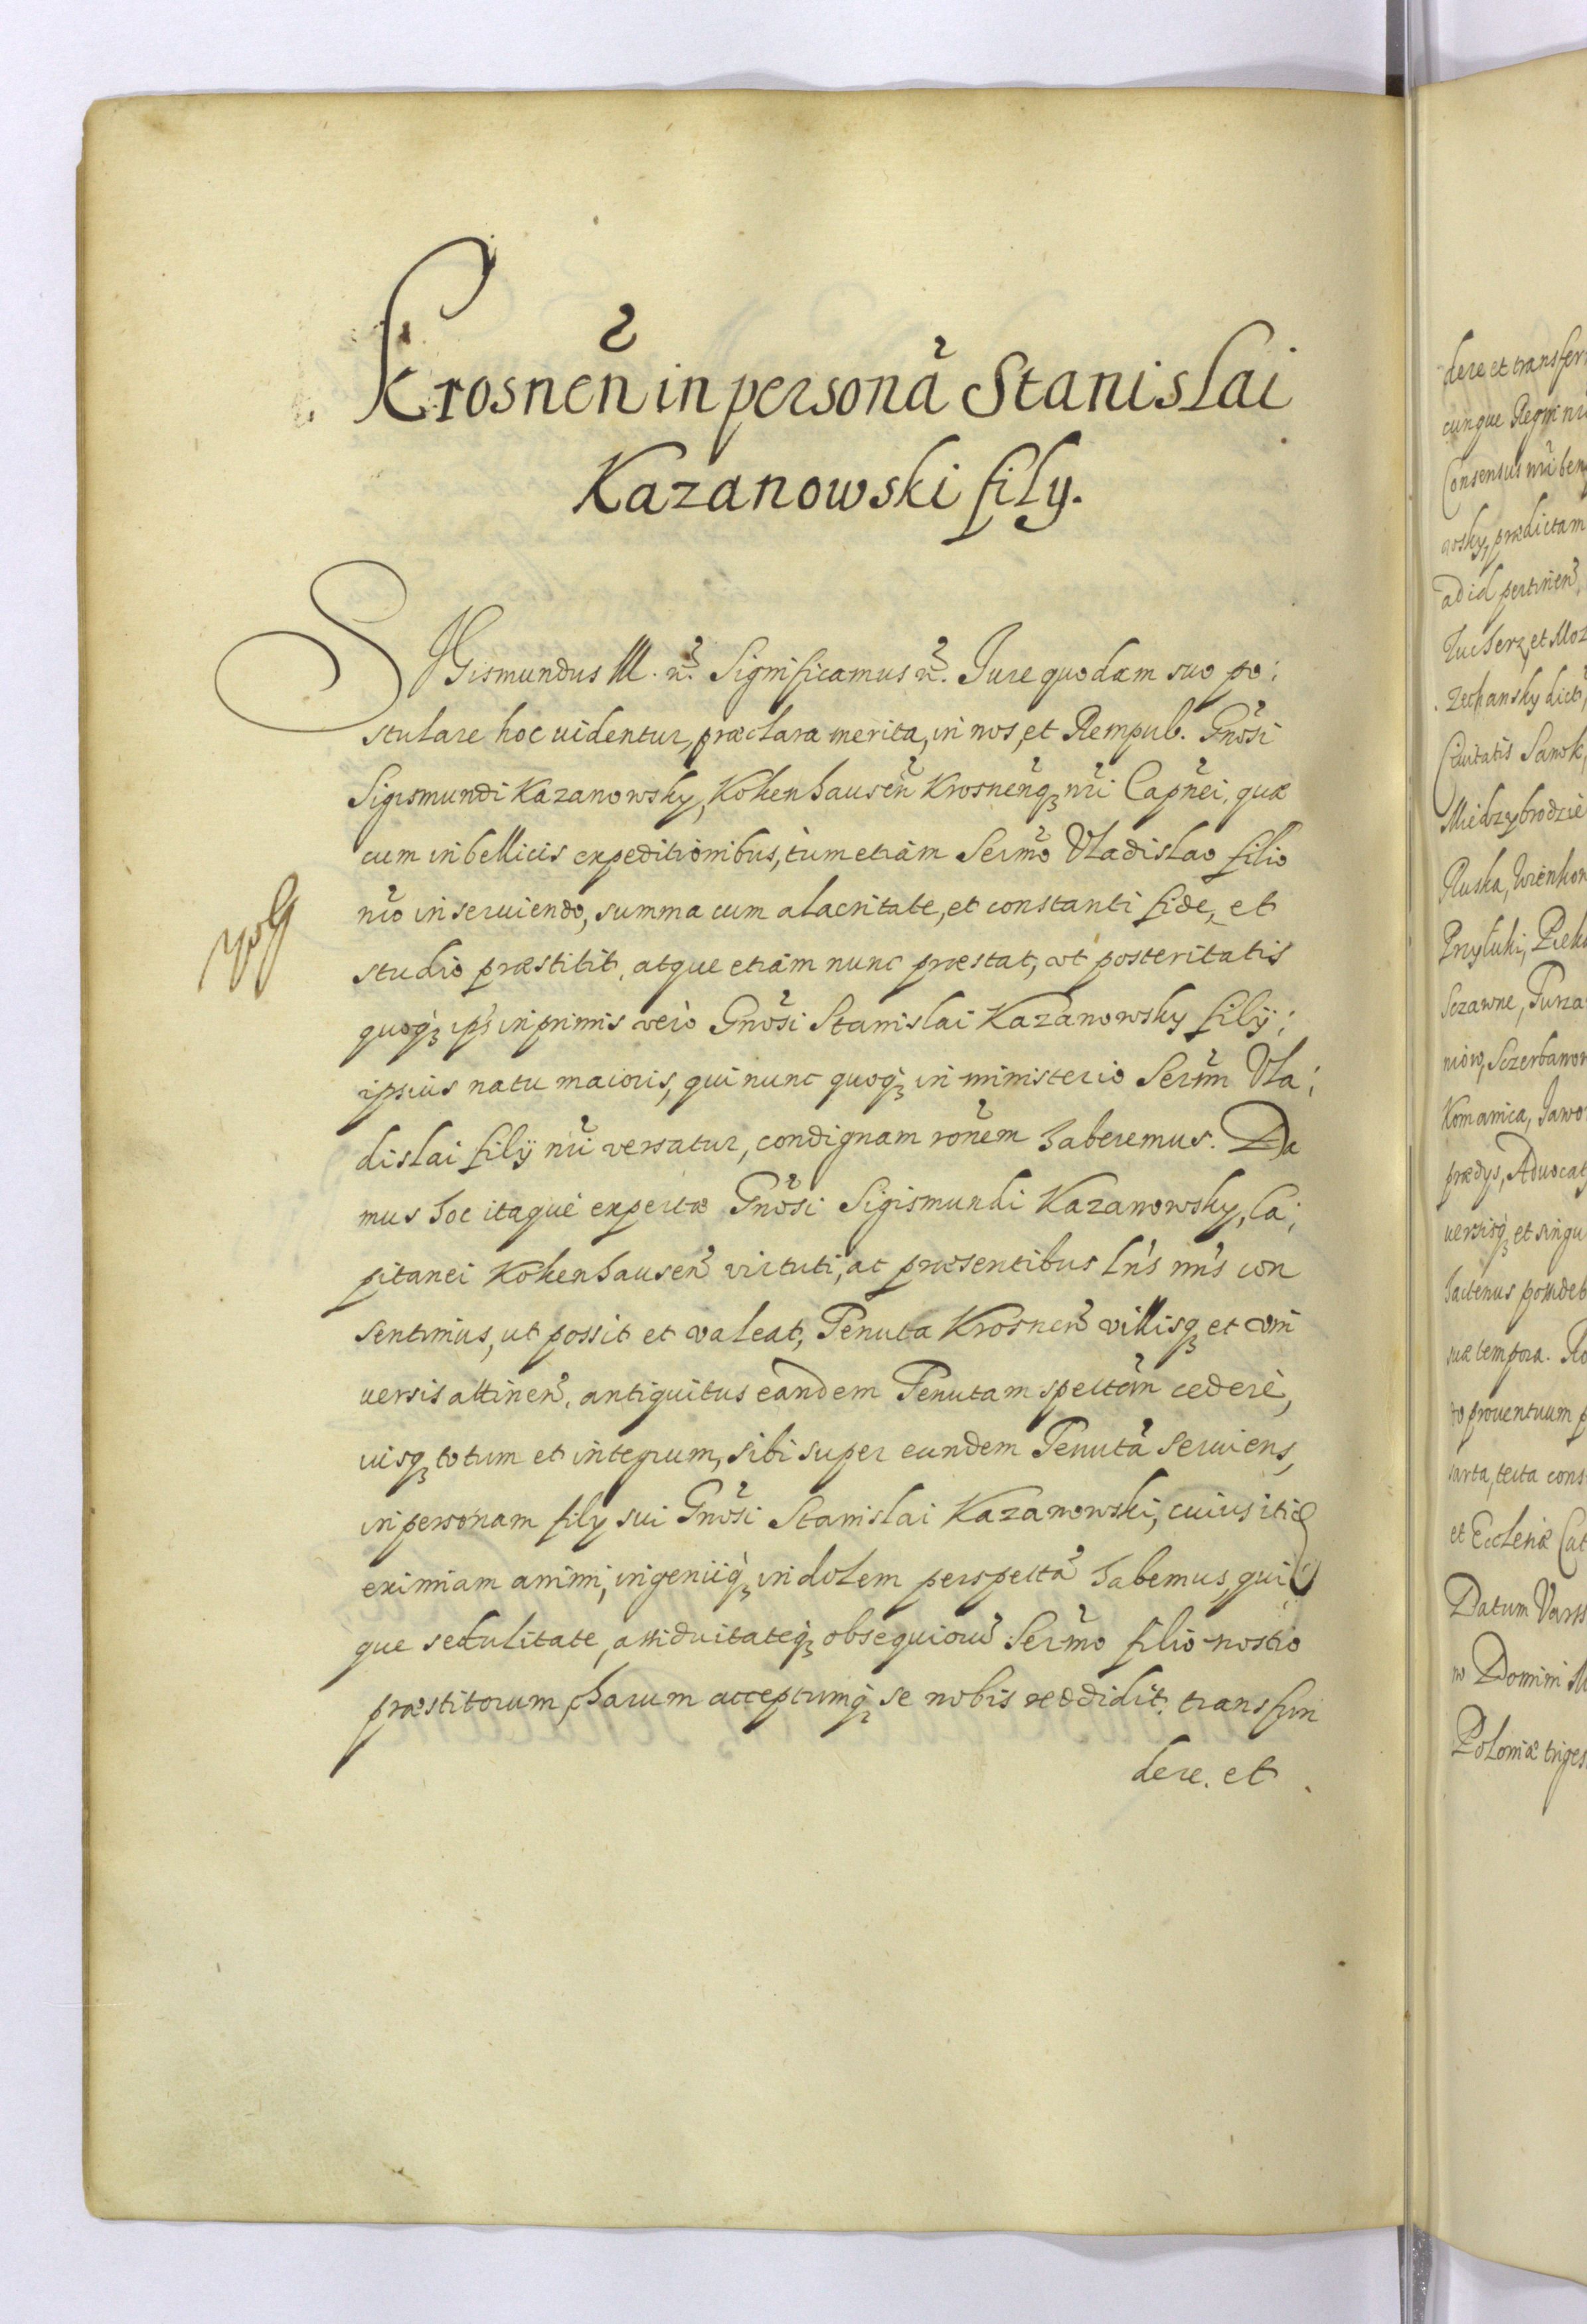 Krosneñ in personã Stanislai
Kazanowski fily.
SIGismundus III. ñ. Significamus ñ. Jure quodam suo po:
stulare hoc uidentur, præclara merita, in nos, et Rempub. Gnõsi
Sigismundi Kazanowsky, Kokenhauseñ Krosneñq₃ nri Capñei, quæ
cum in bellicis expeditionibus, tum etiam Sermõ Vladislao filio
nrõ inseruiendo, summa cum alacritate, et constanti fide, et
studio præstitit, atque etiam nunc præstat, ut posteritatis
quoq₃ ips₃ inprimis vero Gnõsi Stanislai Kazanowsky filij;
ipsius natu maioris, qui nunc quoq₃ in ministerio Serm̃ Vla:
dislai filij nri versatur, condignam ronem haberemus. Da
mus hoc itaque expertæ Gnõsi Sigismundi Kazanowsky, Ca:
pitanei Kokenhauseñ virtuti, ac præsentibus lris nris con
sentimus, ut possit et valeat, Tenuta Krosneñ villisq₃ et vni
uersis attineñ, antiquitus eandem Tenutam spectañ cedere,
iusq₃ totum et integrum, sibi super eandem Tenutã seruiens,
in personam fily sui Gnõsi Stanislai Kazanowski, cuius
eximiam animi, ingenijq₃ indolem perspectã habemus, qui
que sedulitate, assiduitateq₃ obsequiorũ Sermõ filio nostro
præstitorum, charum acceptumq₃ se nobis reddidit, transfun
dere. et
dere et transfer
cunque Regni nr
Consensus nri ben
wsky, prædictam
ad id pertineñ,
et Moz
Zechansky dict
Ciuitatis Sanok,
Miedzybrodzie
Ruska,
Przyluki, Piel
Sczawne, Turza
niow, Sczerbanow
Komanica, Jawo
prædys, Aduocat
uersisq₃ et singu
hactenus possideb
suæ tempora.
to prouentuum p
sarta, tecta cons
et Ecclesiæ Cat
Datum Vars
o Domini M
Poloniæ triges